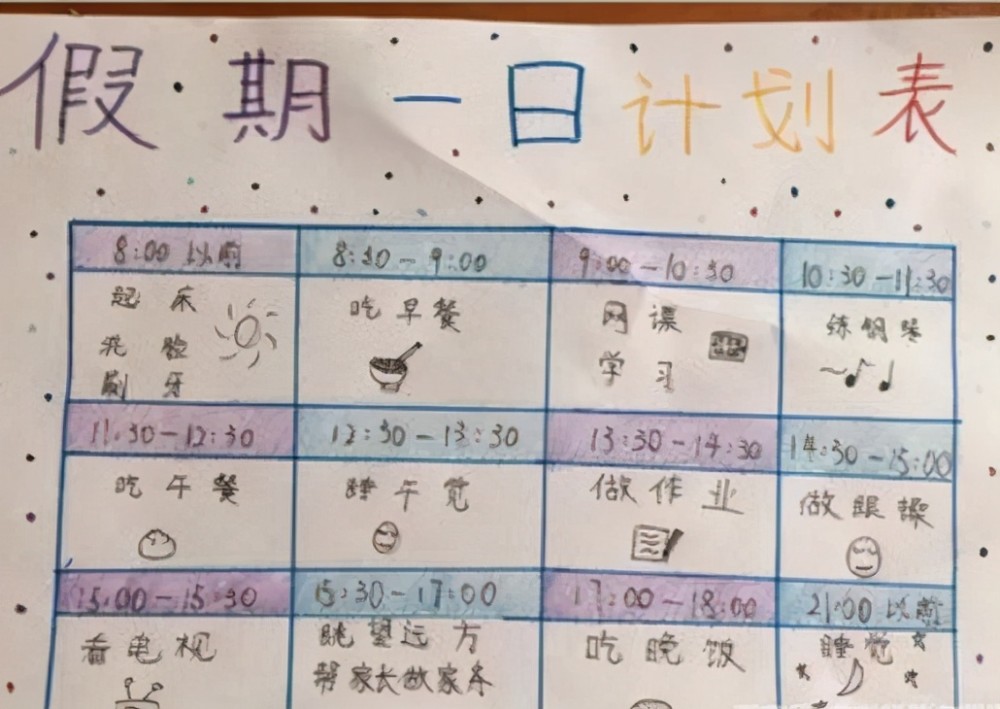 假期一日计划表
8:00以前
8:30-9:00
9:00-10:30
10:30-11:30
起床
洗脸
刷牙
吃早餐
网课
学习
练钢琴
11:30-12:30
12:30-13:30
13:30-14:30
14:30-15:00
吃午餐
睡午觉
做作业
做眼操
15:00-15:30
15:30-17:00
17:00-18:00
21:00以前
看电视
眺望远方
帮家长做家务
吃晚饭
睡觉